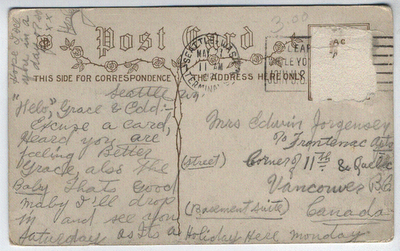 Hope I see
you in a
day or so
xx
Henry
3.00
Post Card
THIS SIDE FOR CORRESPONDENCE
THE ADDRESS HERE ONLY
SEATTLE, WASH.
MAY
11
AM
TERMINAL
Seattle Wn.
"Helo," Grace & Cold:-
Excuse a card,
Heard you are
feeling Better
Grace, also the
Baby. Thats Good
maby I'll drop
in and see you
Saturday as Its a Holiday Here Monday
Mrs Edwin Jorgensey
c/o Frontenac Apts
(street) Corner of 11th & Quebec
Vancouver B.C.
(Basement suite) Canada